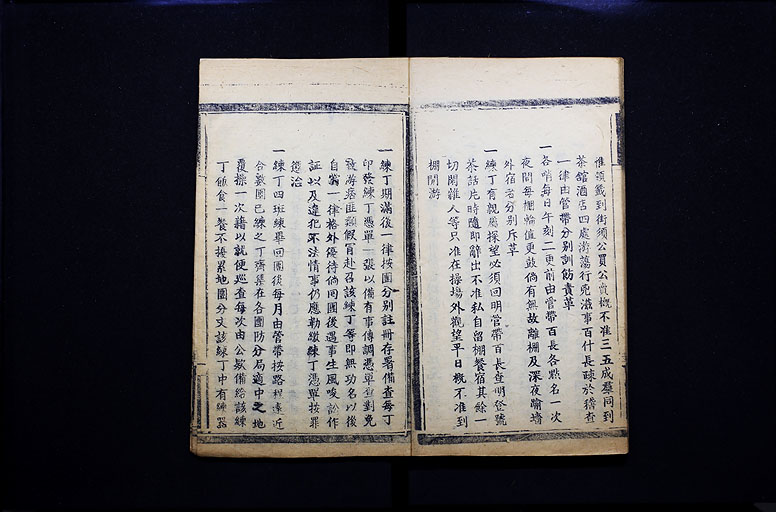 惟須籤到街須公買公賣概不准三五成群同到
茶舘酒店四處游蕩行兇滋事百什長疎於稽查
一律由管帶分别訓飭責革
一各哨每日午刻二更前由管帶百長各㸃名一次
夜間每棚輪值更鼓倘有無故離棚及深夜踰墻
外宿者分别斥革
一練丁有親屬探望必須回明管帶百長查明登號
茶話片時隨即辭出不准私自留棚餐宿其餘一
切閑雜人等只准在操場外觀望平日概不准到
棚閒游
一練丁期滿後一律按團分别註冊存署備查每丁
印發練丁憑單一張以備有事傳調憑單查對免
致游痞匪類假冒赴召該練丁等即無功名以後
自當一律格外優待倘回團後遇事生風唆訟作
証以及違犯不法情事仍應勒繳練丁憑單按罪
懲治
一練丁四班練畢回團後每月由管帶按路程遠近
合數團已練之丁齊集在各團防分局適中之地
覆操一次藉以就便巡查每次由公欵備給該練
丁伙食一餐不擾累地團分文該練丁中有練器